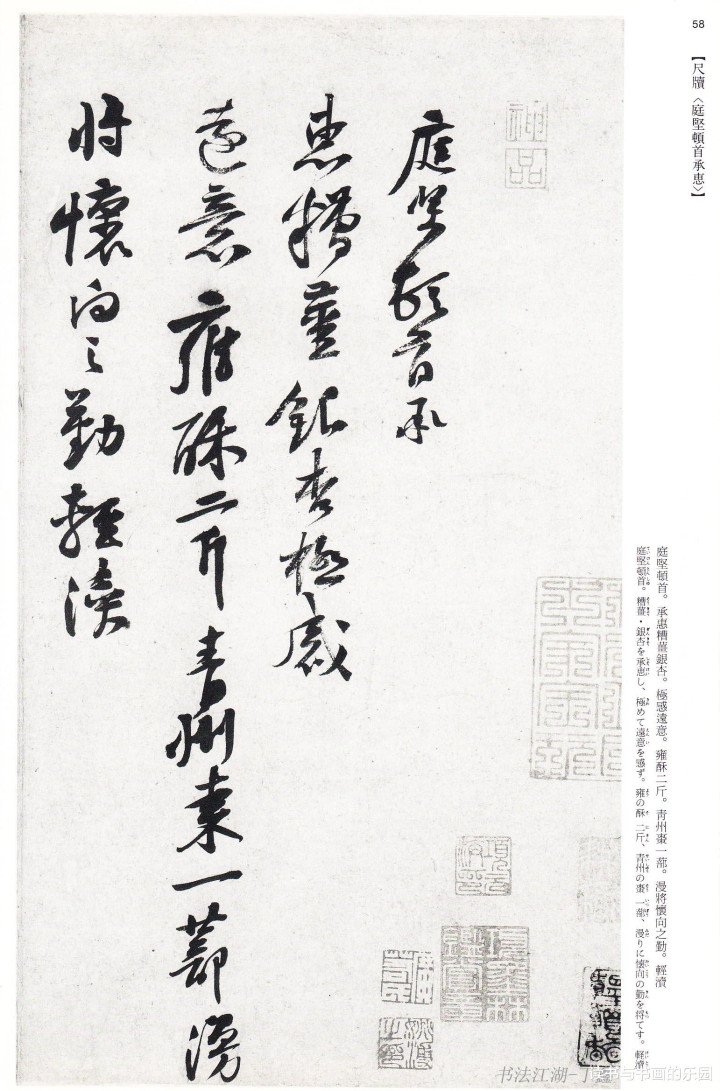 58
【尺牘〈庭堅頓首承恵〉】
庭堅頓首。承惠糟薑銀杏。極感遠意。雍酥二斤。青州棗一蔀。漫將懷向之勤。輕瀆
庭堅頓首。糟薑・銀杏を承恵し、極めて遠意を感ず。雍の酥二斤、青州の棗一蔀、漫りに懐向の勤を将てす。軽瀆
神品
庭堅頓首承
惠糟薑銀杏極感
遠意雍酥二斤青州棗一蔀漫
將懷向之勤輕瀆
书法江湖-丁
读书与书画的乐园